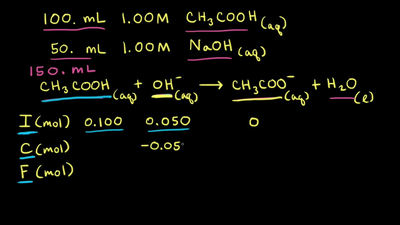 100. mL 1.00M CH₃COOH(aq)
50. mL 1.00M NaOH(aq)
150. mL
CH₃COOH(aq) + OH⁻(aq) → CH₃COO⁻(aq) + H₂O(l)
I (mol) 0.100 0.050 0
C (mol) -0.05
F (mol)